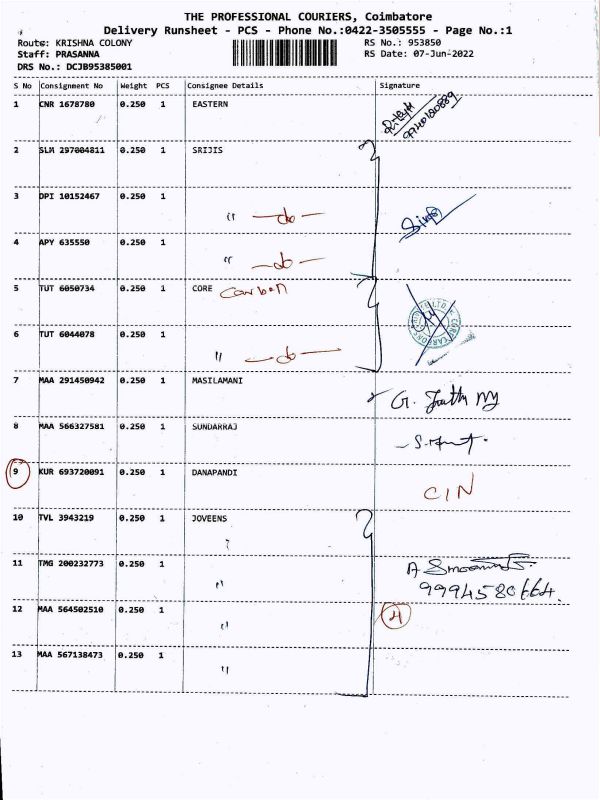 THE PROFESSIONAL COURIERS, Coimbatore
Delivery Runsheet - PCS - Phone No.:0422-3505555 - Page No.:1
Route: KRISHNA COLONY RS No.: 953850
Staff: PRASANNA RS Date: 07-Jun-2022
DRS No.: DCJB95385001
S No Consignment No Weight PCS Consignee Details Signature
1 CNR 1678780 0.250 1 EASTERN
2 SLM 297004811 0.250 1 SRIJIS
3 DPI 10152467 0.250 1
" —do—
4 APY 635550 0.250 1
" —do—
5 TUT 6050734 0.250 1 CORE Carbon
6 TUT 6044078 0.250 1
" —do—
7 MAA 291450942 0.250 1 MASILAMANI
G.
8 MAA 566327581 0.250 1 SUNDARRAJ
9 KUR 693720091 0.250 1 DANAPANDI
CIN
10 TVL 3943219 0.250 1 JOVEENS
11 TMG 200232773 0.250 1
" A
9994580664.
12 MAA 564502510 0.250 1 4
"
13 MAA 567138473 0.250 1
"